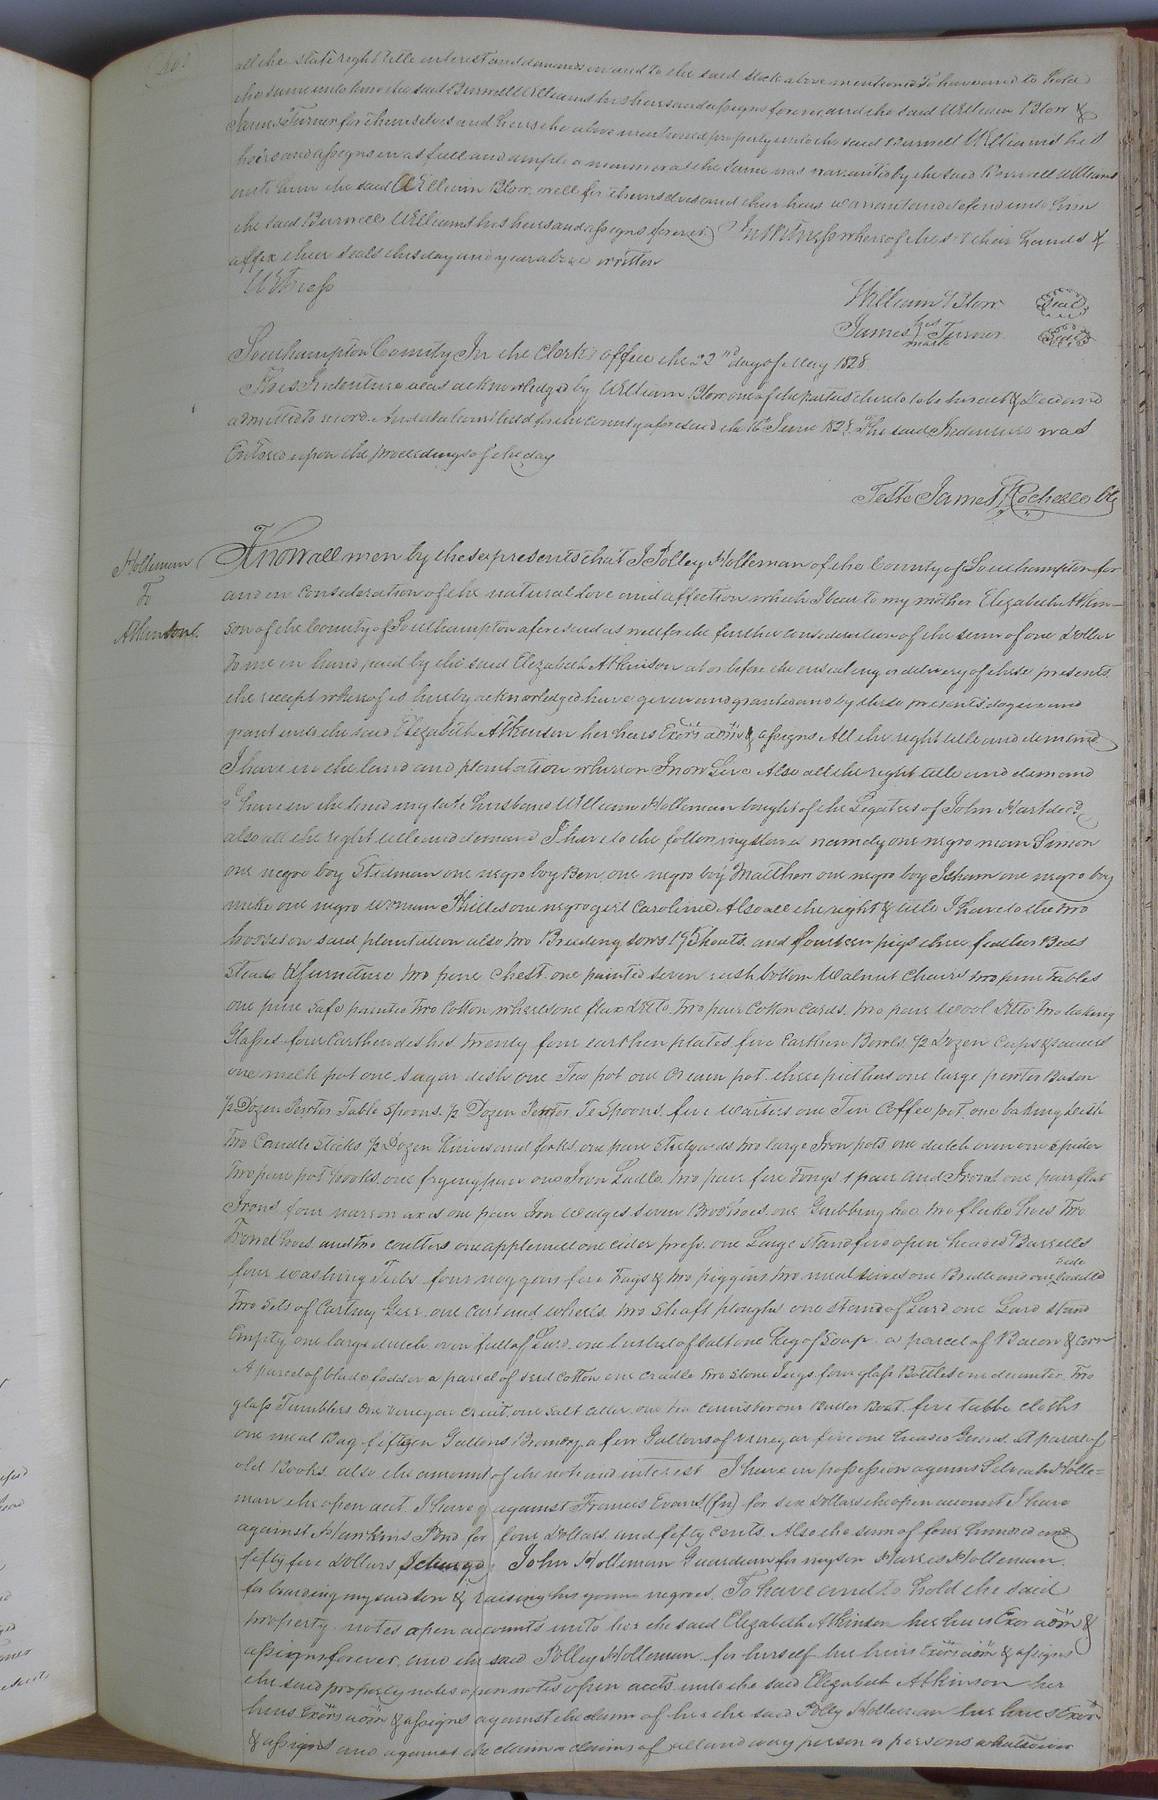 all the estate right title interest and demands in and to the said stock above mentioned To have and to hold
the same unto him the said Burwell Williams his heirs and assigns forever, and the said William Blow &
James Turner for themselves and heirs the above mentioned property unto the said Burwell Williams his
heirs and assigns in as full and ample a manner as the same was warrantied by the said Burwell Williams
unto him the said William Blow, well for themselves and their heirs warrant and defend unto him
the said Burwell Williams his heirs and assigns forever) In witness whereof they set their hands &
affix their seals this day and year above written
Witness
William Blow Seal
James his Turner Seal
mark
Southampton County In the Clerk's office the 22nd day of May 1828
This Indenture was acknowledged by William Blow one of the parties thereto to be his act & Deed and
admitted to record. And at a Court held for the County aforesaid the 16th June 1828 The said Indenture was
Entered upon the proceedings of the day
Teste James Rochelle Clk
Holleman
To
Atkinson
Know all men by these presents that I Polley Holleman of the County of Southampton for
and in consideration of the natural love and affection which I bear to my mother Elizabeth Atkin-
son of the County of Southampton aforesaid as well for the further consideration of the sum of one Dollar
to me in hand paid by the said Elizabeth Atkinson at or before the ensealing or delivery of these presents
the receipt whereof is hereby acknowledged have given and granted and by these presents do give and
grant unto the said Elizabeth Atkinson her heirs Exors adm & assigns All the right title and demand
I have in the land and plantation whereon I now Live Also all the right title and demand
I have in the land my late husband William Holleman bought of the Legatees of John Hart decd
also all the right title and demand I have to the following slaves namely one negro man Simon
one negro boy Stedman one negro boy Ben, one negro boy Matthew one negro boy Isham one negro boy
mike one negro woman Phillis one negro girl Caroline. Also all the right & title I have to the two
horses on said plantation also two Breeding sows 19 Shoats and fourteen pigs three feather Beds
steads & furniture two pine Chest one painted seven rush bottom Walnut Chairs two pine tables
one pine safe painted two Cotton wheels one flax ditto two pair Cotton cards, two pair wool ditto two looking
Glasses four Earthen dishes, twenty four earthen plates five Earthen Bowls, 1/2 Dozen Cups & saucers
one milk pot one sugar dish one Tea pot one Cream pot three pitchers one large pewter Bason
1/2 Dozen Pewter Table Spoons 1/2 Dozen Pewter Te Spoons, five waiters one Tin Coffee pot one baking dish
two Candle sticks 1/2 Dozen Knives and forks, one pair Stilyards two large Iron pots one dutch oven one spider
two pair pot hooks, one frying pan one Iron Ladle two pair fire tongs 1 pair and Irons one pair flat
Irons, four narrow axes one pair Iron wedges seven Broad hoes, one Grubbing hoe two fluke hoes two
Trowel hoes and two coulters one apple mill one cider press one Large stand five open headed Barrells
four washing Tubs four noggins five Trays & two piggins two meal sieves one Bridle and one side saddle
two sets of Carting Gear one Cart and wheels, two Shaft ploughs one stand of Lard one Lard stand
Empty one large dutch oven full of Lard one bushel of salt one Keg of Soap a parcel of Bacon & corn
A parcel of blade fodder a parcel of seed Cotton one cradle two stone Jugs four glass Bottles one decanter two
glass Tumblers one vinegar cruit, one salt celler, one tea cannister one Butter Boat, five table cloths
one meal Bag fifteen Gallons Brandy a few Gallons of vinegar five one Geese. A parcel of
old Books also the amount of the note and interest I have in possession against Holle=
man the open acct. I have against Francis Evans for six dollars the open account I have
against Hawkins Pond for four Dollars and fifty cents. Also the sum of four hundred and
fifty five Dollars I charge John Holleman Guardian for my son Harris Holleman
for boarding my said son & raising his young negroes, To have and to hold the said
property notes open accounts unto her the said Elizabeth Atkinson her heirs Exor adm &
assigns forever, and the said Polley Holleman for herself her heirs Exors adm & assigns
the said property notes open notes open accts. unto the said Elizabeth Atkinson her
heirs Exors adm & assigns against the claim of her the said Polly Holleman her heirs Exors
& assigns and against the claim or claims of all and every person or persons whatsoever